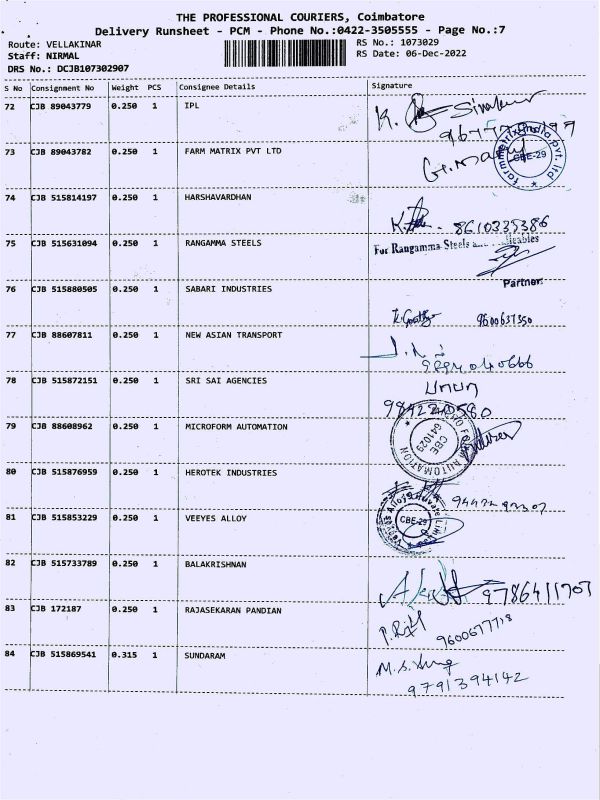 THE PROFESSIONAL COURIERS, Coimbatore
Delivery Runsheet - PCM - Phone No.:0422-3505555 - Page No.:7
Route: VELLAKINAR
RS No.: 1073029
Staff: NIRMAL
RS Date: 06-Dec-2022
DRS No.: DCJB107302907
S No Consignment No Weight PCS Consignee Details Signature
72 CJB 89043779 0.250 1 IPL
K. Sivakumar
73 CJB 89043782 0.250 1 FARM MATRIX PVT LTD
Farmmatrix India Pvt. ltd
CBE-29
74 CJB 515814197 0.250 1 HARSHAVARDHAN
8610335386
75 CJB 515631094 0.250 1 RANGAMMA STEELS
For Rangamma Steels
Partner
76 CJB 515880505 0.250 1 SABARI INDUSTRIES
9600637350
77 CJB 88607811 0.250 1 NEW ASIAN TRANSPORT
78 CJB 515872151 0.250 1 SRI SAI AGENCIES
79 CJB 88608962 0.250 1 MICROFORM AUTOMATION
CBE
641029
AUTOMATION
80 CJB 515876959 0.250 1 HEROTEK INDUSTRIES
81 CJB 515853229 0.250 1 VEEYES ALLOY
CBE-29
82 CJB 515733789 0.250 1 BALAKRISHNAN
9786411707
83 CJB 172187 0.250 1 RAJASEKARAN PANDIAN
9600677718
84 CJB 515869541 0.315 1 SUNDARAM
9791394142